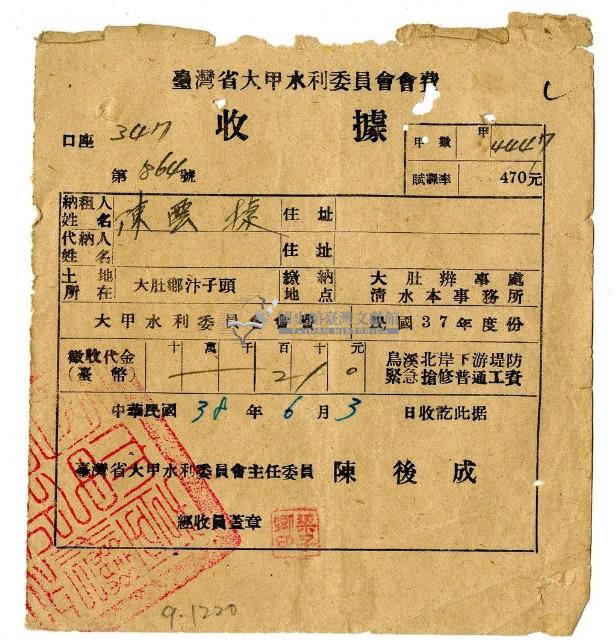 臺灣省大甲水利委員會會費
收據
口座 347
第 864 號
甲數 甲 4447
賦課率 470元
納租人姓名 陳雲掾 住址
代納人姓名 住址
土地所在 大肚鄉汴子頭 繳納地点 大肚辦事處 清水本事務所
大甲水利委員會 民國37年度份
徵收代金(臺幣) 十萬千百十元 210 烏溪北岸下游堤防緊急搶修普通工費
中華民國 38 年 6 月 3 日收訖此据
臺灣省大甲水利委員會主任委員 陳後成
經收員蓋章
9.1220